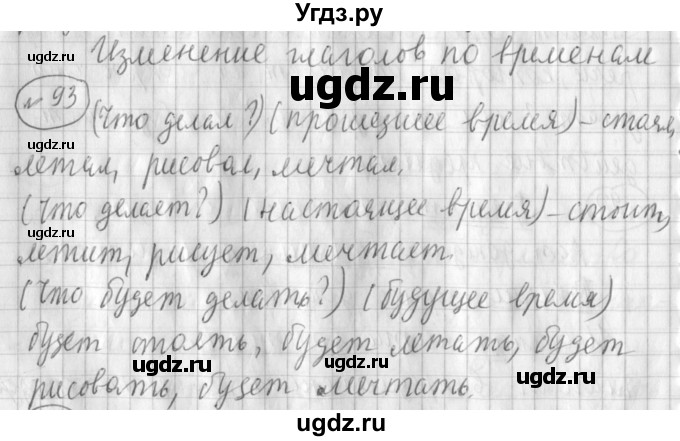 Угдз.ру
Изменение глаголов по временам
№ 93
(Что делал?) (прошедшее время) – стоял,
летал, рисовал, мечтал.
(Что делает?) (настоящее время) – стоит,
летит, рисует, мечтает.
(Что будет делать?) (будущее время)
будет стоять, будет летать, будет
рисовать, будет мечтать.
ugdz.ru
ugdz.ru
ugdz.ru
ugdz.ru
ugdz.ru
ugdz.ru
ugdz.ru
ugdz.ru
ugdz.ru